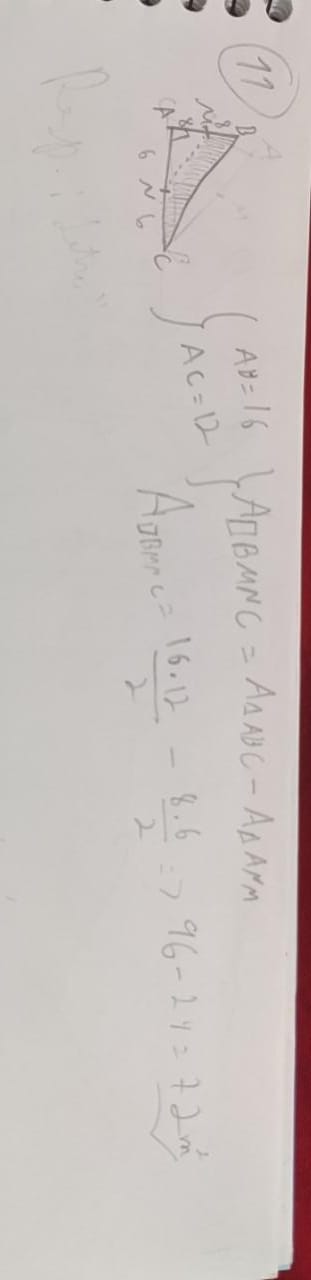 11
B
M 8
A 8
6 N 6
C
{ AB = 16
{ AC = 12
} A□BMNC = A△ABC - A△ANM
A□BMNC = 16.12/2 - 8.6/2 => 96 - 24 = 72m²
Resp.: